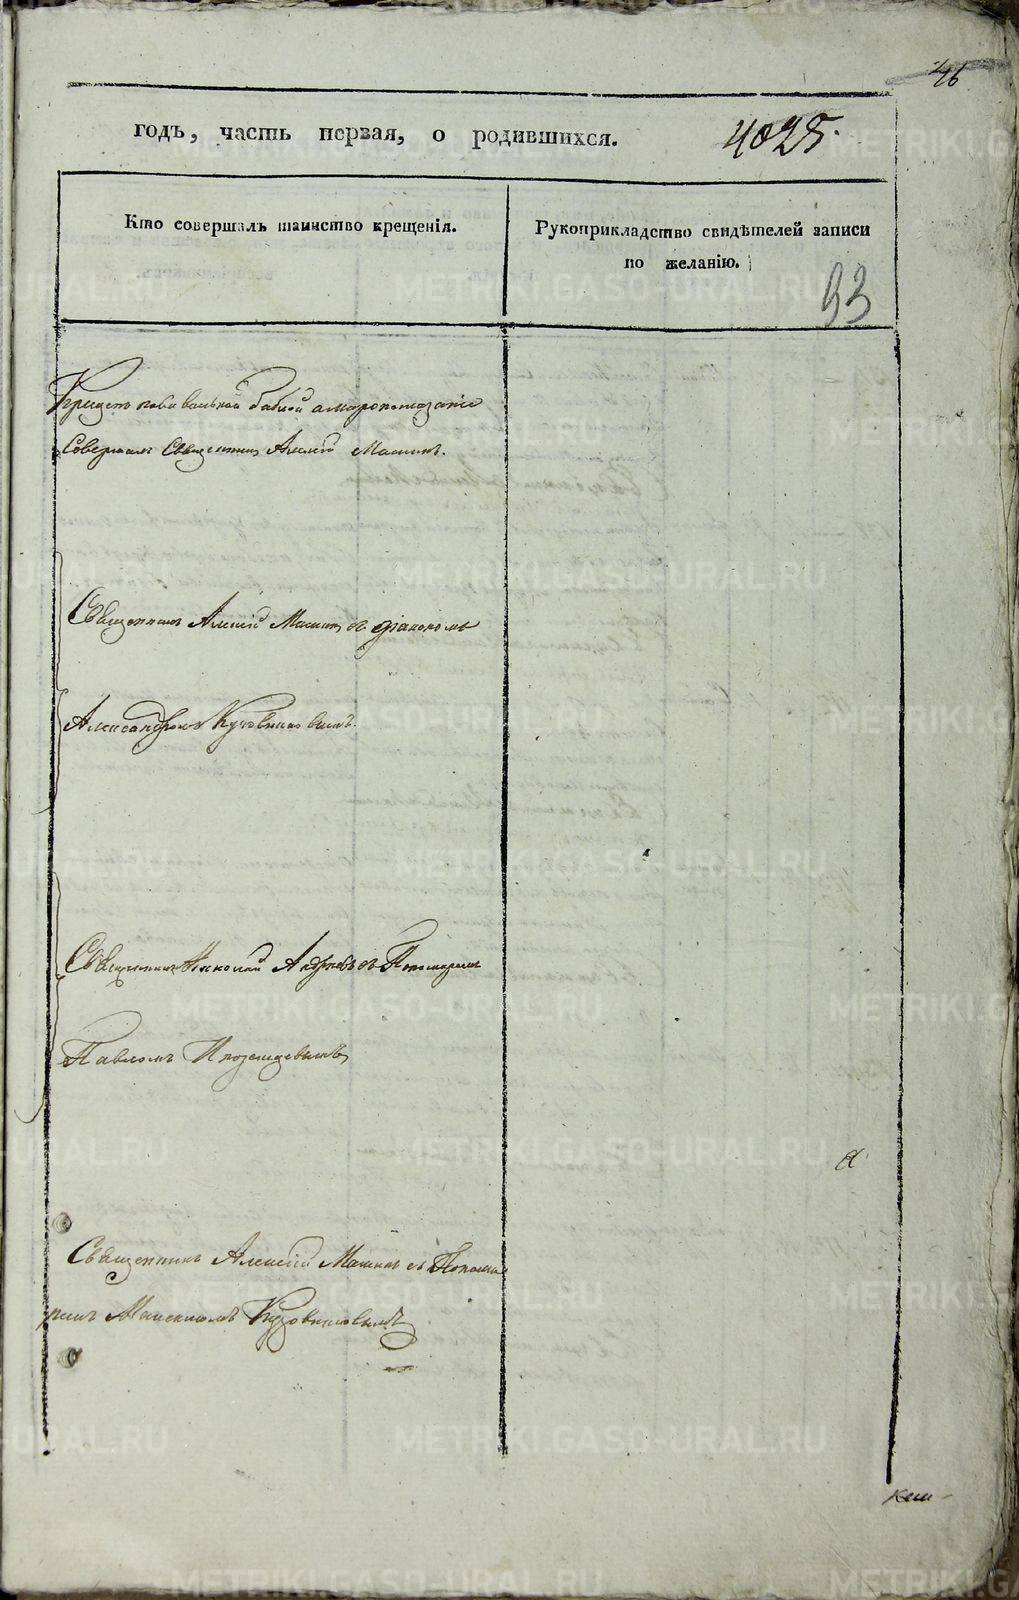 46
годъ, часть первая, о родившихся.
4025.
Кто совершалъ таинство крещенія.
Рукоприкладство свидѣтелей записи
по желанію.
93
Крещенъ повивальной бабкой а миропомазаніе
Совершалъ Священникъ Алексій
Священникъ Алексій съ діакономъ
Александромъ Кузовниковымъ
Священникъ Николай Андреевъ съ Пономаремъ
Павломъ
Священникъ Алексій съ Понома
ремъ Максимомъ Кузовниковымъ
METRIKI.GASO-URAL.RU